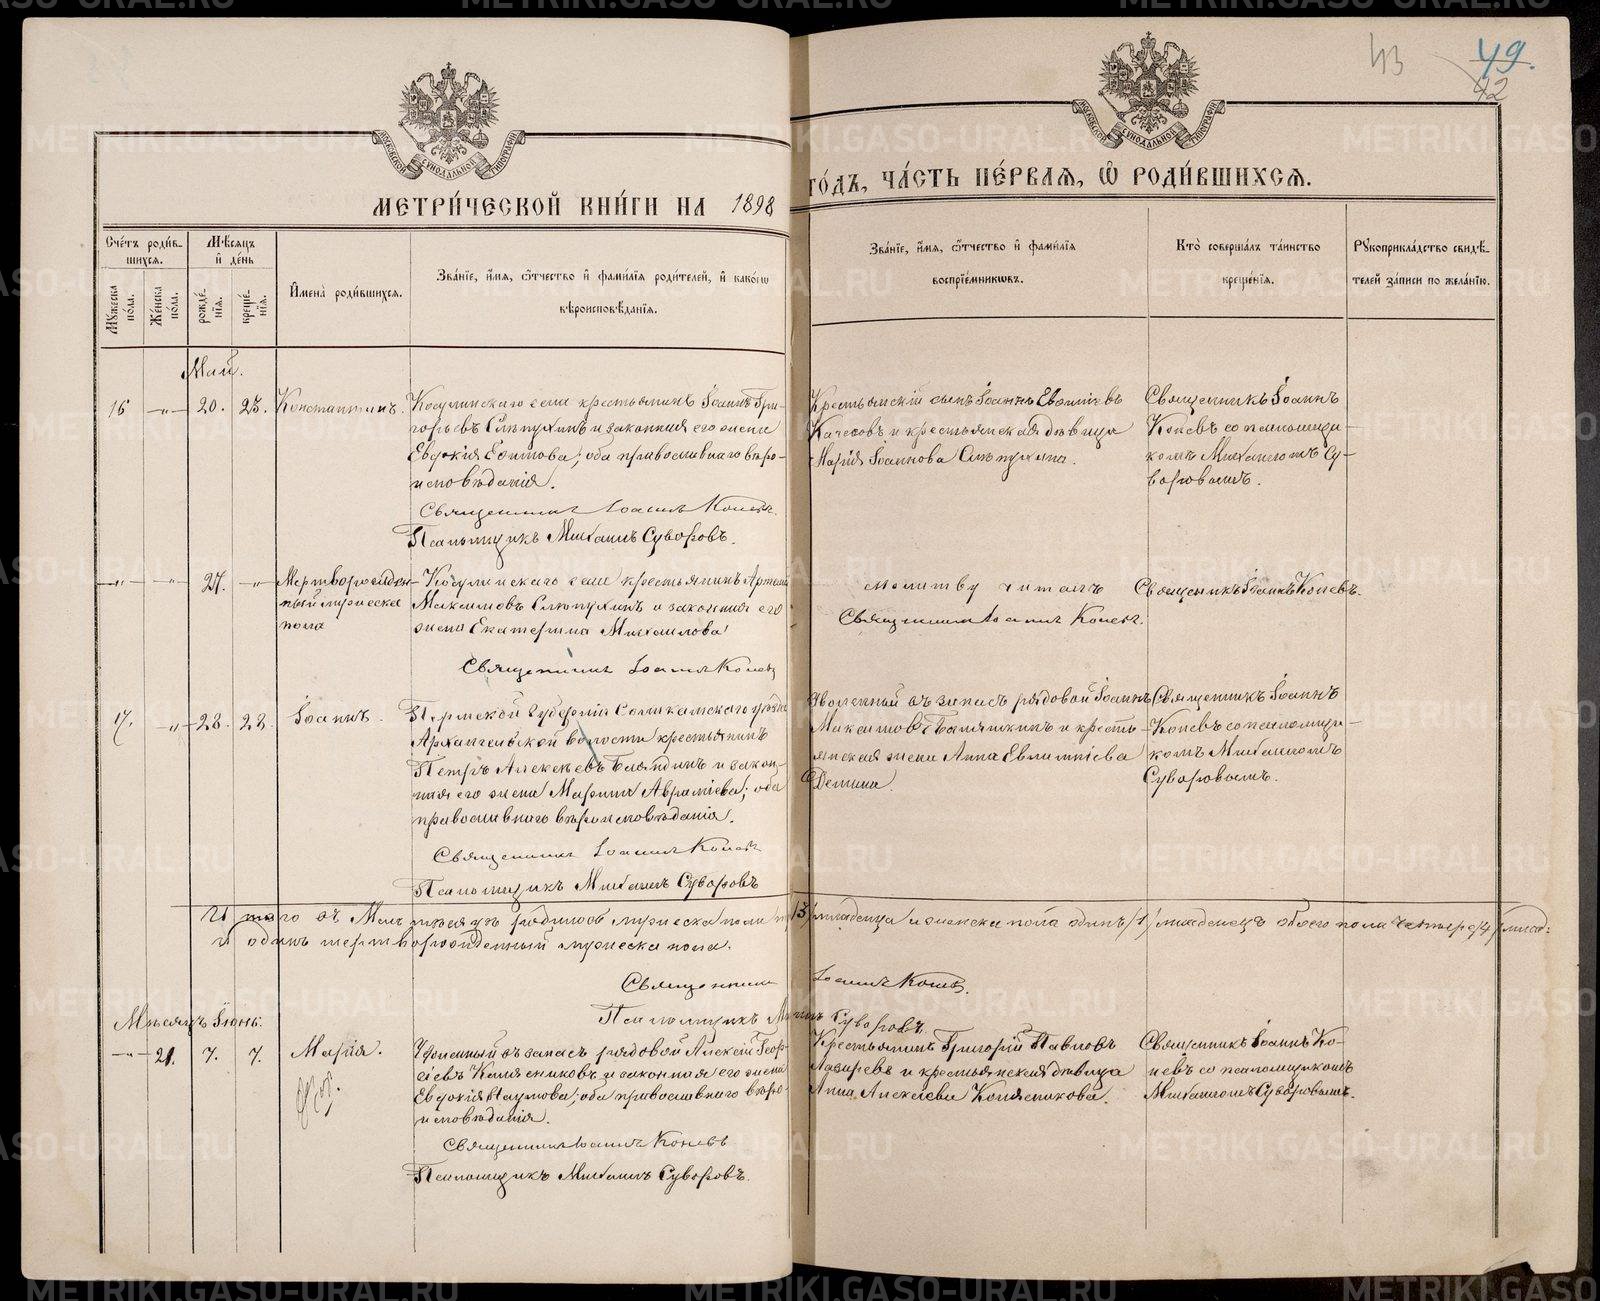 43
49.
42
МОСКОВСКОЙ СѴНОДАЛЬНОЙ ТИПОГРАФІИ
МОСКОВСКОЙ СѴНОДАЛЬНОЙ ТИПОГРАФІИ
МЕТРИ́ЧЕСКОЙ КНИ́ГИ НА 1898
ГО́ДЪ, ЧА́СТЬ ПЕ́РВАѦ, Ѡ҆ РОДИ́ВШИХСѦ.
Сче́тъ роди́в-
шихсѧ.
Мѣ́сѧцъ
и҆ де́нь
Мꙋ́жеска
по́ла.
Же́нска
по́ла.
рожде́-
нїѧ.
креще́-
нїѧ.
И҆мена̀ роди́вшихсѧ.
Зва́нїе, и҆́мѧ, ѻ҆́тчество и҆ фами́лїѧ роди́телей, и҆ како́гѡ
вѣроисповѣ́данїѧ.
Зва́нїе, и҆́мѧ, ѻ҆́тчество и҆ фами́лїѧ
воспрїе́мникѡвъ.
Кто̀ соверша́лъ та́инство
креще́нїѧ.
Рꙋкоприкла́дство свидѣ́-
телей за́писи по жела́нїю.
Май.
16 —„— 20. 23. Константинъ.
Косулинскаго села крестьянинъ Іоаннъ Гри-
горьевъ Слѣпухинъ и законная его жена
Евдокія Ефимова; оба православнаго вѣро-
исповѣданія.
Священникъ Іоаннъ Коневъ.
Псаломщикъ Михаилъ Суворовъ.
Крестьянскій сынъ Іоаннъ
Качесовъ и крестьянская дѣвица
Марія Іоаннова Слѣпухина.
Священникъ Іоаннъ
Коневъ со псаломщи-
комъ Михаиломъ Су-
воровымъ.
—„— —„— 27. —„— Мертворожден-
ный мужеска
пола
Косулинскаго села крестьянинъ
Максимовъ Слѣпухинъ и законная его
жена Екатерина Михаилова
Священникъ Іоаннъ Коневъ
Молитву читалъ
Священникъ Іоаннъ Коневъ.
Священникъ Іоаннъ Коневъ.
17. —„— 28. 28. Іоаннъ.
Пермской губерніи Соликамскаго уѣзда
Архангельской волости крестьянинъ
Петръ Алексѣевъ и закон-
ная его жена Аврамiева; оба
православнаго вѣроисповѣданія.
Священникъ Іоаннъ Коневъ
Псаломщикъ Михаилъ Суворовъ
Уволенный въ запасъ рядовой Іоаннъ
Максимовъ и кресть-
янская жена Анна Евлампіева
Демина.
Священникъ Іоаннъ
Коневъ со псаломщи-
комъ Михаиломъ
Суворовымъ.
Итого въ Маѣ мѣсяцѣ родилось мужеска пола три /3/ младенца и женска пола одинъ /1/ младенецъ обоего пола четверо /4/ млад:
и одинъ мертворожденный мужеска пола.
Священникъ Іоаннъ Коневъ.
Псаломщикъ Михаилъ Суворовъ.
Мѣсяцъ Іюнь.
—„— 21. 7. 7. Марія.
Уволенный въ запасъ рядовой Алексѣй Геор-
гіевъ и законная его жена
Евдокія Наумова; оба православнаго вѣро-
исповѣданія.
Священникъ Іоаннъ Коневъ
Псаломщикъ Михаилъ Суворовъ.
Крестьянинъ Григорій Павловъ
Лазаревъ и крестьянская дѣвица
Анна Алексѣева
Священникъ Іоаннъ Ко-
невъ со псаломщикомъ
Михаиломъ Суворовымъ.
METRIKI.GASO-URAL.RU